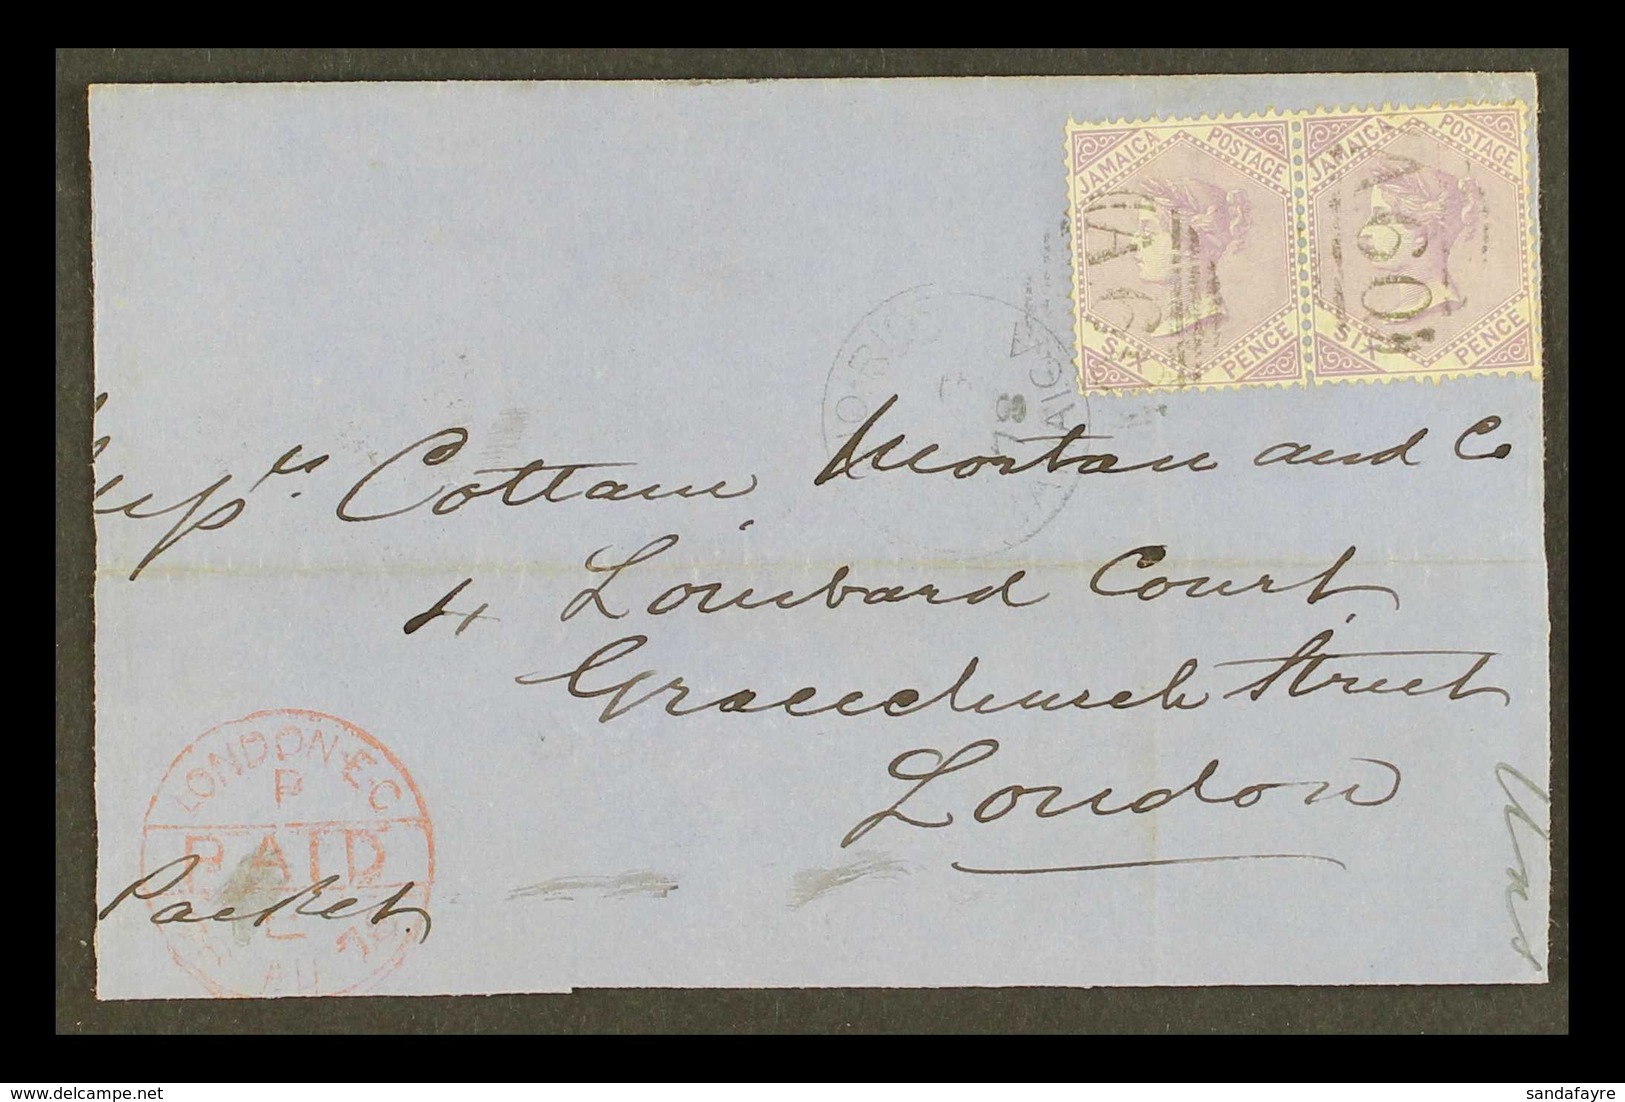 JAMAICA POSTAGE
SIX PENCE
JAMAICA POSTAGE
SIX PENCE
A60
78
Messrs. Cottam Mortan and Co
4 Lombard Court
Gracechurch Street
London
LONDON·E.C.
P
PAID
AU 78
Packet
© Delcampe.net
sandafayre